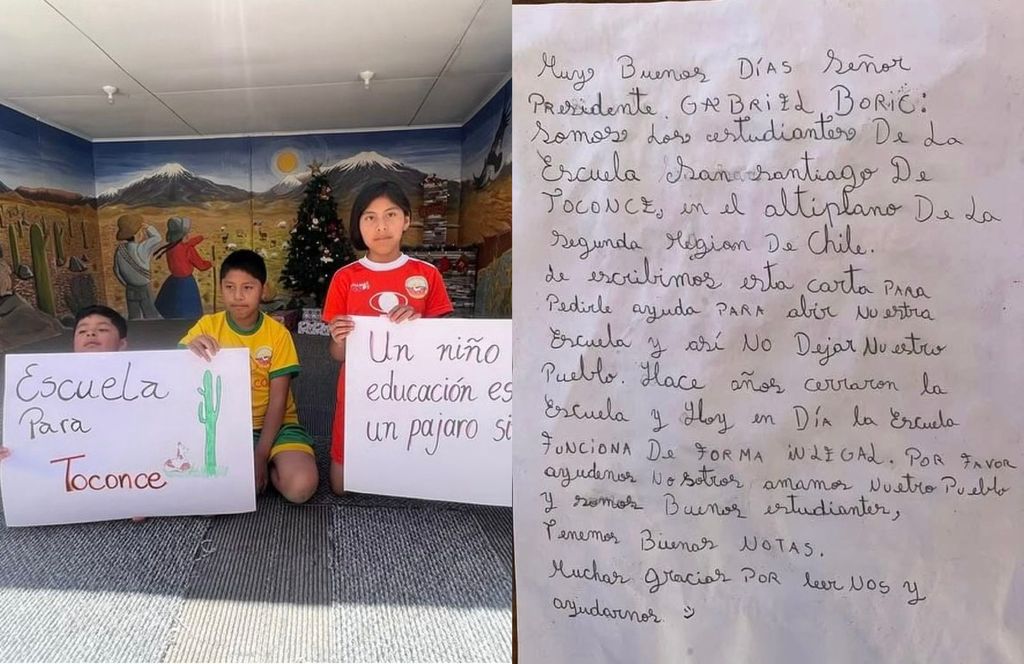 Escuela
Para
Toconce
Un niño
educación es
un pajaro si
Muy Buenos DÍAS Señor
Presidente. GABRIEL BORIC:
Somos Los estudiantes De La
Escuela San santiago De
TOCONCE, en el altiplano De La
segunda Region De Chile.
Le escribimos esta carta PARA
Pedirle ayuda PARA abir Nuestra
Escuela y así NO Dejar Nuestro
Pueblo. Hace años cerraron la
Escuela y Hoy en DÍA la Escuela
FUNCIONA De FORMA iNLEGAL. POR FAVOR
ayudenos Nosotros amamos Nuetro Pueblo
y somos Buenos estudiantes,
Tenemos Buenas NOTAS.
Muchas gracias POR leer NOS y
ayudarnos